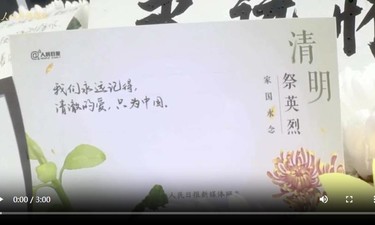 人民日报
我们永远记得，
清澈的爱，只为中国。
清明
祭英烈
家国永念
人民日报新媒体
0:00 / 3:00